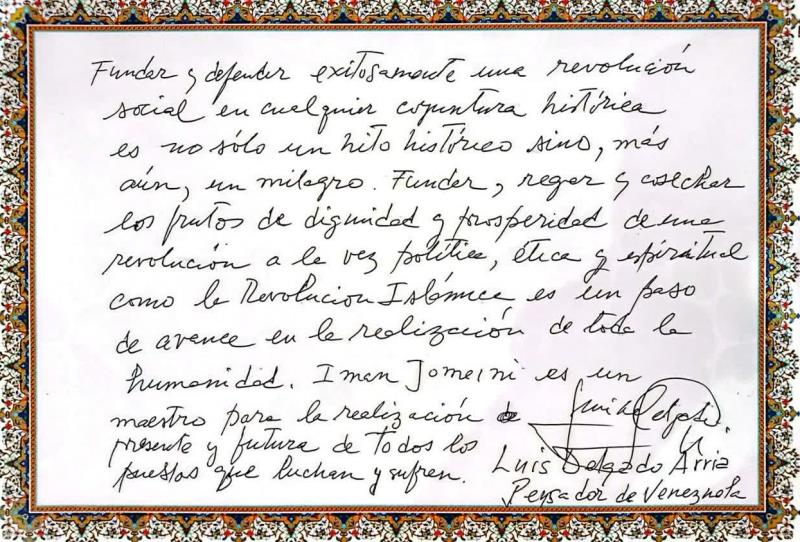 Fundar y defender exitosamente una revolución
social en cualquier coyuntura histórica
es no sólo un hito histórico sino, más
aún, un milagro. Fundar, regar y cosechar
los frutos de dignidad y prosperidad de una
revolución a la vez política, ética y espiritual
como la Revolucion Islámica es un paso
de avance en la realización de toda la
humanidad. Iman Jomeini es un
maestro para la realización
presente y futura de todos los
pueblos que luchan y sufren.
Luis Delgado Arria
Pensador de Venezuela